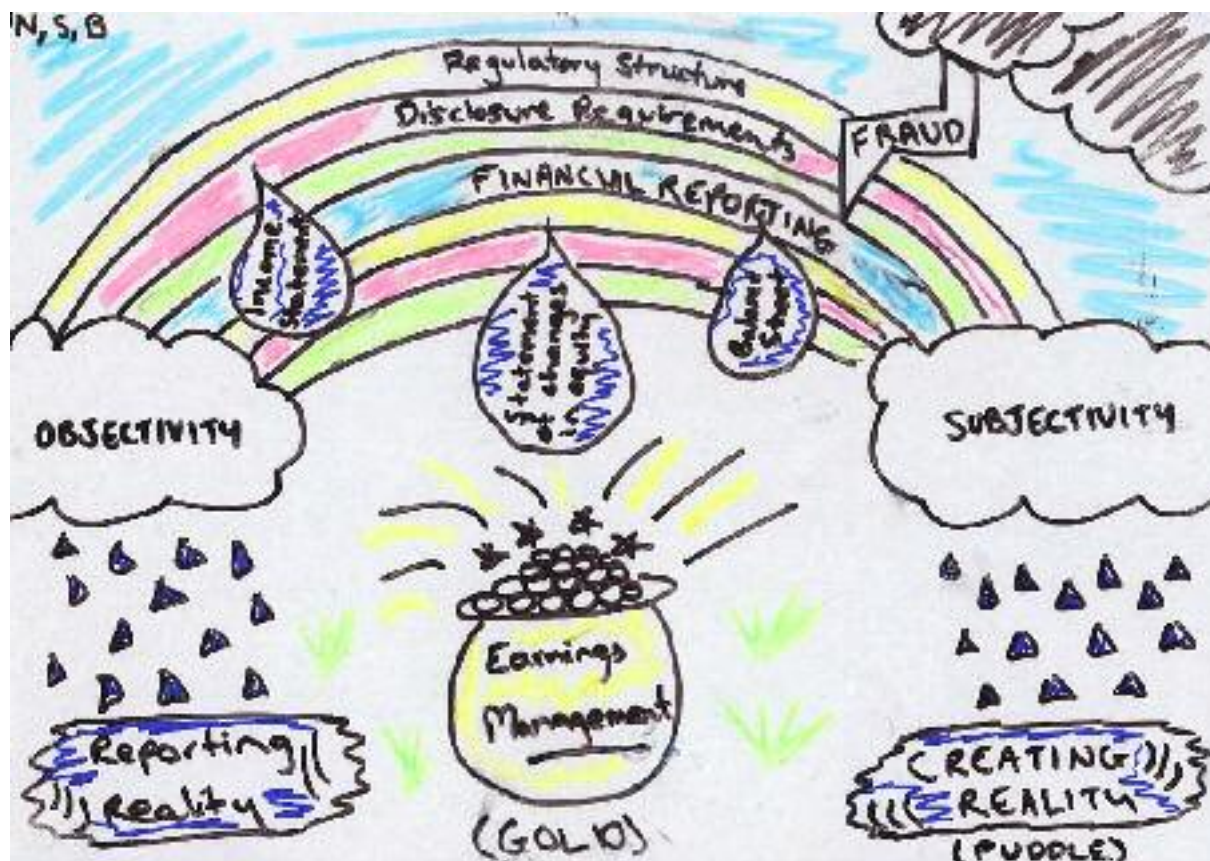 N, S, B
Regulatory Structure
Disclosure Requirements
FRAUD
FINANCIAL REPORTING
Income
Statement
Statement
of changes
in equity
Balance
Sheet
OBJECTIVITY
SUBJECTIVITY
Earnings
Management
(GOLD)
Reporting
Reality
CREATING
REALITY
(PUDDLE)